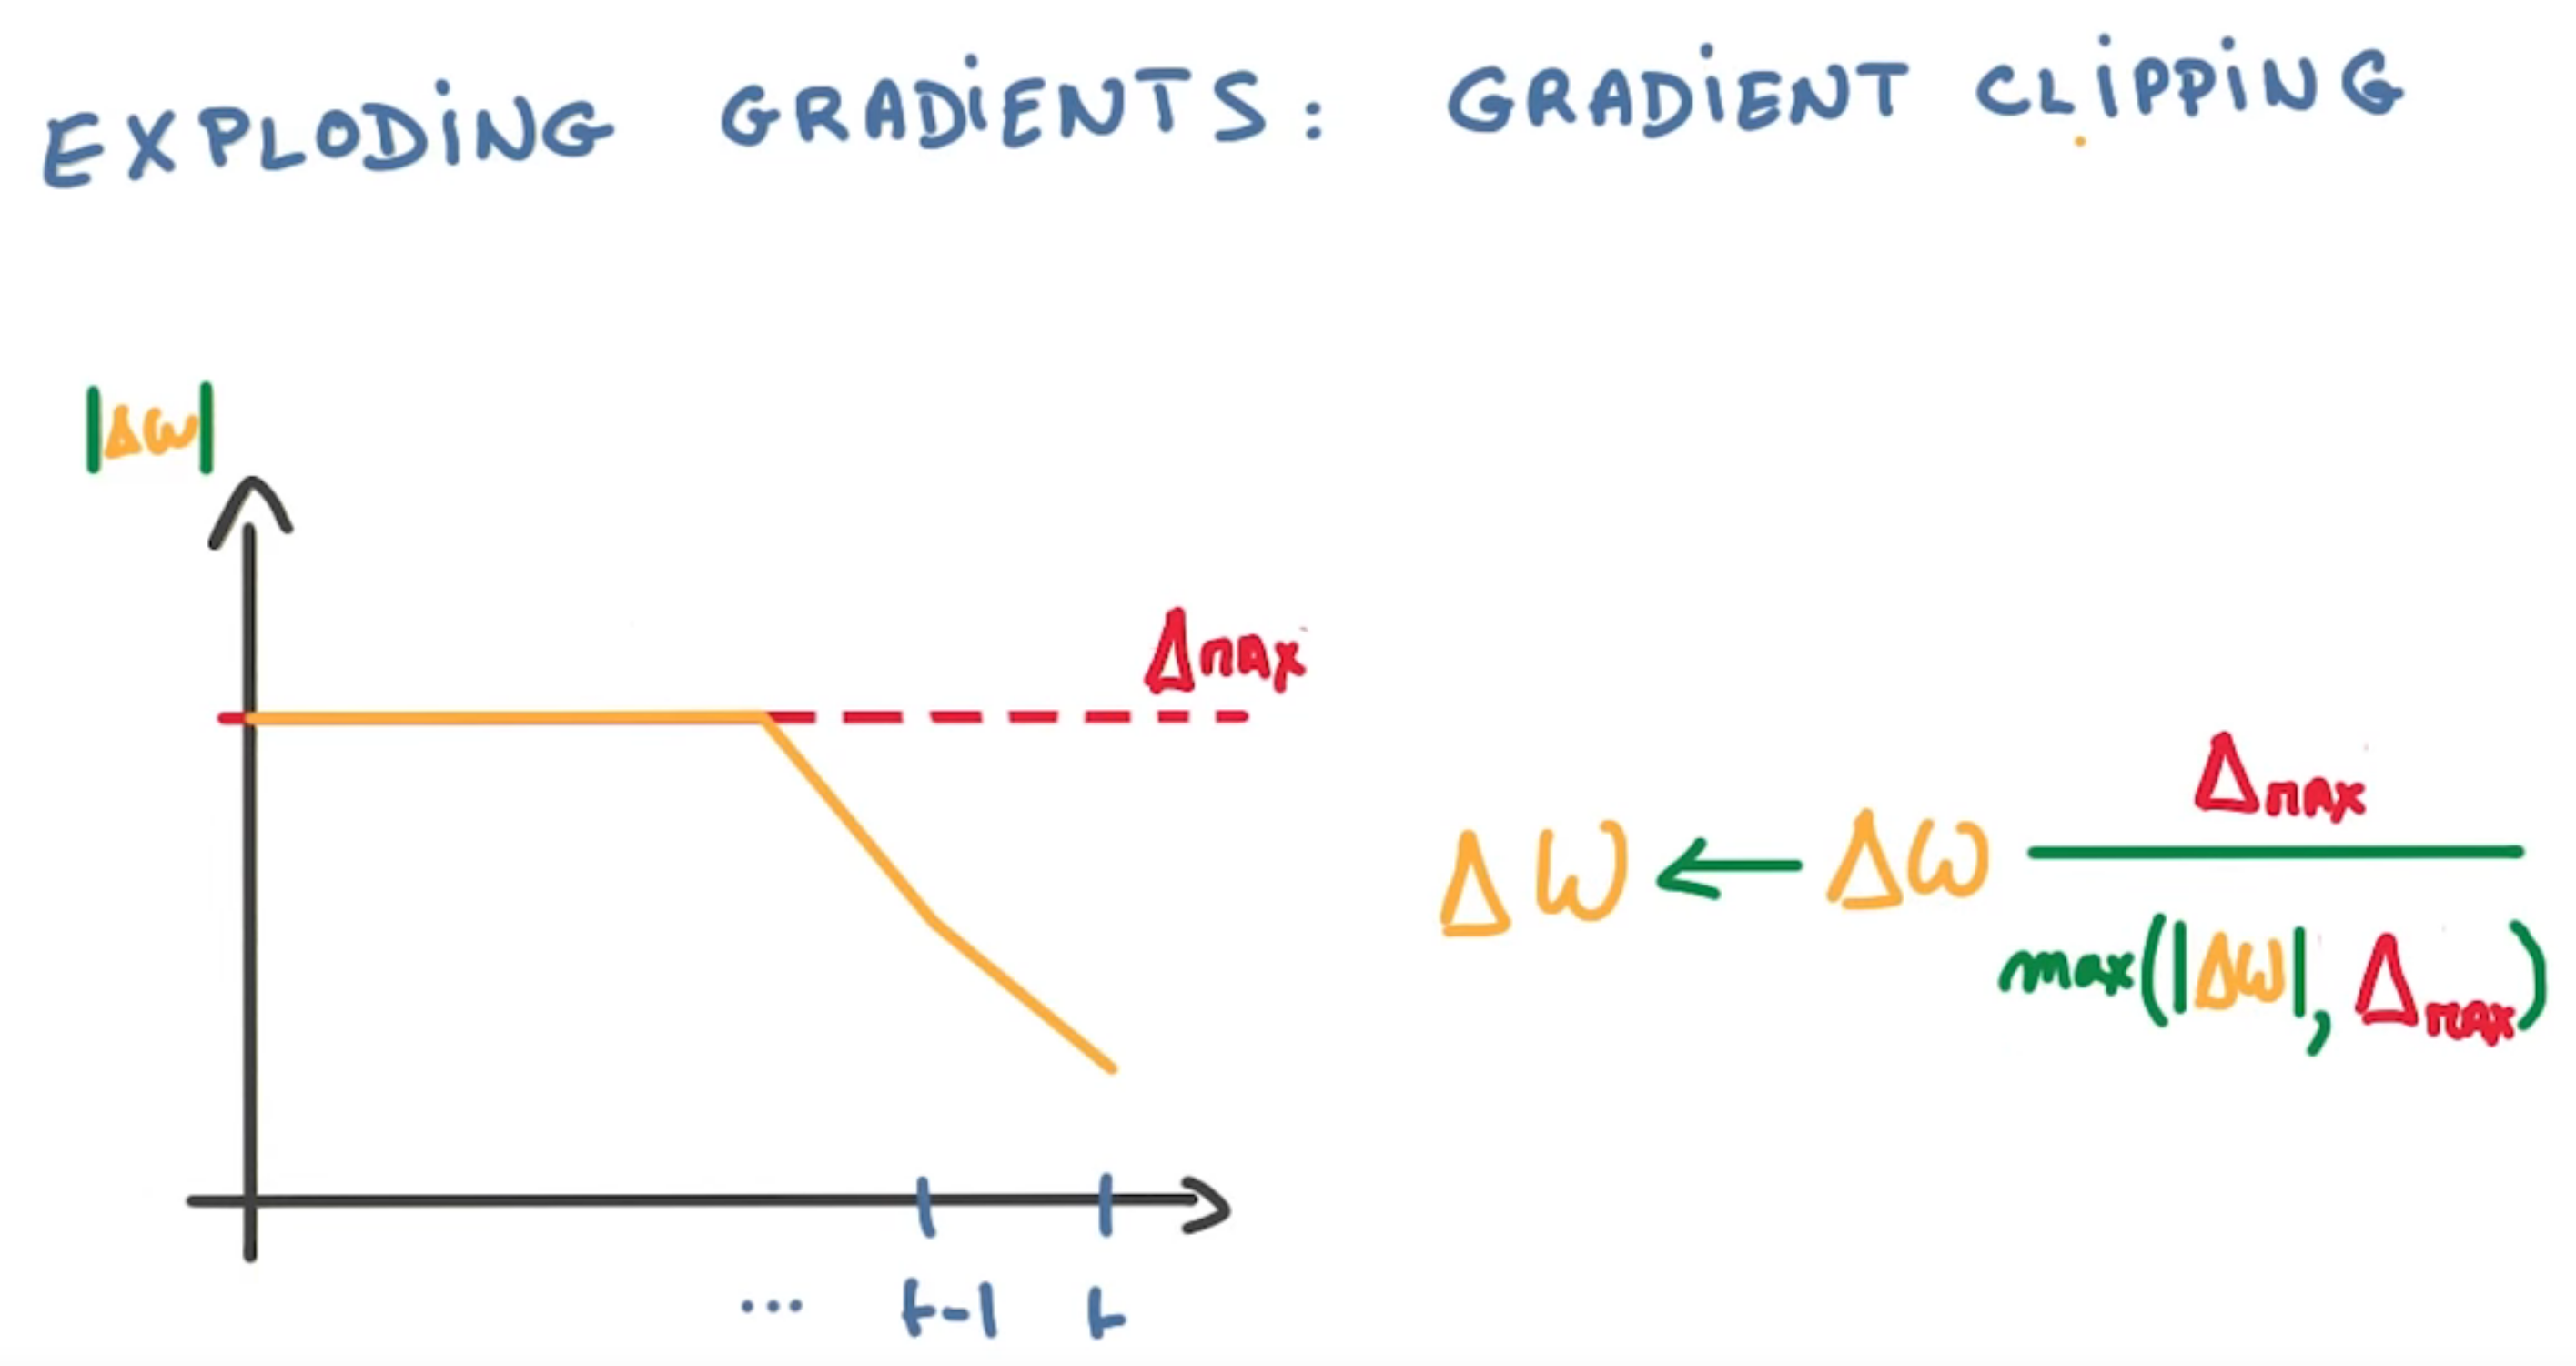 EXPLODING GRADIENTS: GRADIENT CLIPPING
|Δω|
Δmax
Δω ← Δω Δmax
max(|Δω|, Δmax)
... t-1 t